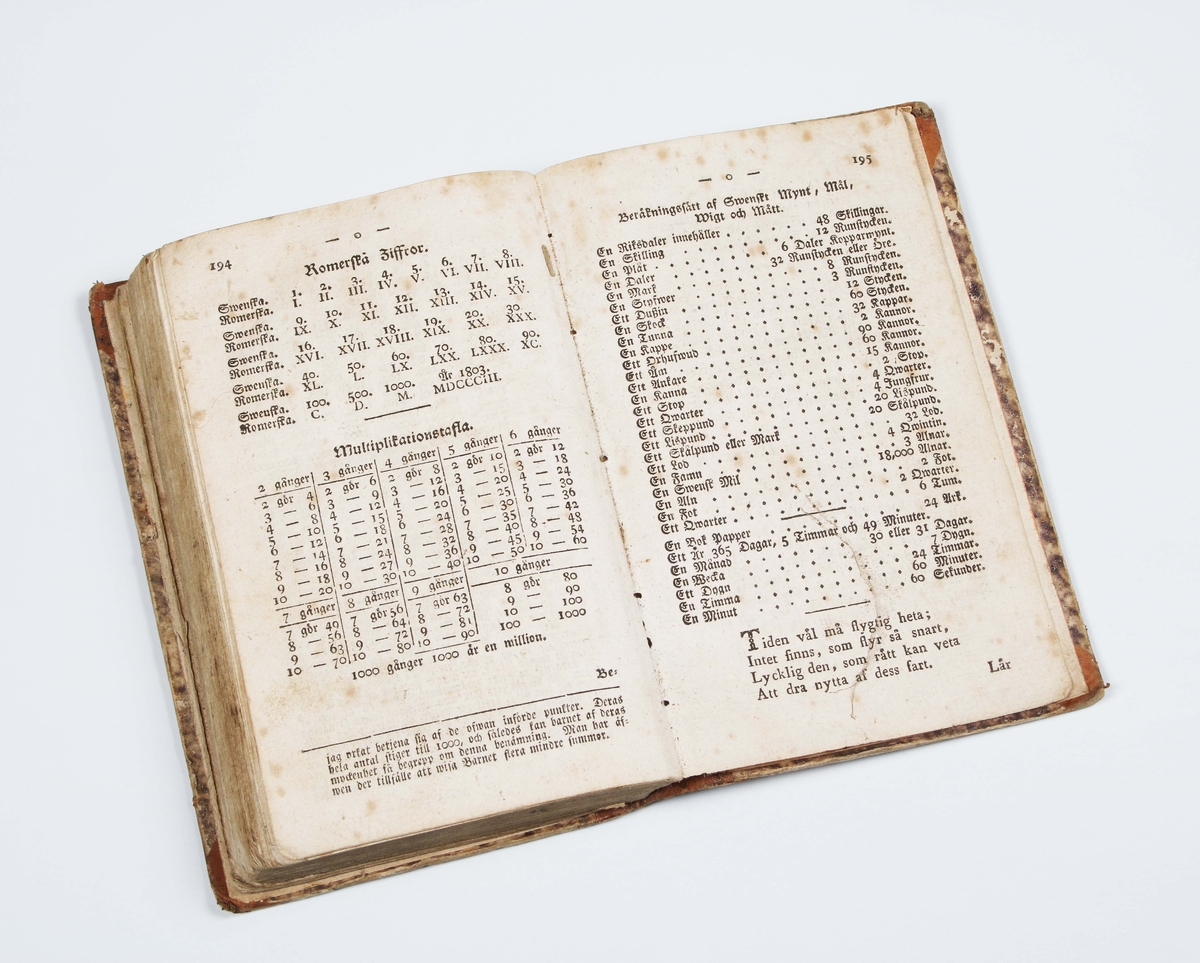 194
— o —
Romerska Ziffror.
Swenska. 1. 2. 3. 4. 5. 6. 7. 8.
Romerska. I. II. III. IV. V. VI. VII. VIII.
Swenska. 9. 10. 11. 12. 13. 14. 15.
Romerska. IX. X. XI. XII. XIII. XIV. XV.
Swenska. 16. 17. 18. 19. 20. 30
Romerska. XVI. XVII. XVIII. XIX. XX. XXX.
Swenska. 40. 50. 60. 70. 80. 90.
Romerska. XL. L. LX. LXX. LXXX. XC.
Swenska. 100. 500. 1000. År 1803.
Romerska. C. D. M. MDCCCIII.
Multiplikationstafla.
2 gånger 3 gånger 4 gånger 5 gånger 6 gånger
2 gör 4 2 gör 6 2 gör 8 2 gör 10 2 gör 12
3 — 6 3 — 9 3 — 12 3 — 15 3 — 18
4 — 8 4 — 12 4 — 16 4 — 20 4 — 24
5 — 10 5 — 15 5 — 20 5 — 25 5 — 30
6 — 12 6 — 18 6 — 24 6 — 30 6 — 36
7 — 14 7 — 21 7 — 28 7 — 35 7 — 42
8 — 16 8 — 24 8 — 32 8 — 40 8 — 48
9 — 18 9 — 27 9 — 36 9 — 45 9 — 54
10 — 20 10 — 30 10 — 40 10 — 50 10 — 60
7 gånger 8 gånger 9 gånger 10 gånger
7 gör 49 7 gör 56 7 gör 63 8 gör 80
8 — 56 8 — 64 8 — 72 9 — 90
9 — 63 9 — 72 9 — 81 10 — 100
10 — 70 10 — 80 10 — 90 100 — 1000
1000 gånger 1000 är en million.
Be-
jag orkat betjena sig af de ofwan införde punkter. Deras
hela antal stiger till 1000, och således kan barnet af deras
myckenhet få begrepp om denna benämning. Man har äf-
wen der tillfälle att wisa Barnet flera mindre summor.
195
— o —
Beräkningssätt af Swenskt Mynt, Mål,
Wigt och Mått.
En Riksdaler innehåller 48 Skillingar.
En Skilling 12 Runstycken.
En Plåt 6 Daler Kopparmynt.
En Daler 32 Runstycken eller Öre.
En Mark 8 Runstycken.
En Styfwer 3 Runstycken.
Ett Dußin 12 Stycken.
En Skock 60 Stycken.
En Tunna 32 Kappar.
En Kappe 2 Kannor.
Ett Oxhufwud 90 Kannor.
Ett Åm 60 Kannor.
Ett Ankare 15 Kannor.
En Kanna 2 Stop.
Ett Stop 4 Qwarter.
Ett Qwarter 4 Jungfrur.
Ett Skeppund 20 Lispund.
Ett Lispund 20 Skålpund.
Ett Skålpund eller Mark 32 Lod.
Ett Lod 4 Qwintin.
En Famn 3 Alnar.
En Swensk Mil 18,000 Alnar.
En Aln 2 Fot.
En Fot 2 Qwarter.
Ett Qwarter 6 Tum.
En Bok Papper 24 Ark.
Ett År 365 Dagar, 5 Timmar och 49 Minuter.
En Månad 30 eller 31 Dagar.
En Wecka 7 Dygn.
Ett Dygn 24 Timmar.
En Timma 60 Minuter.
En Minut 60 Sekunder.
Tiden väl må flygtig heta;
Intet finns, som flyr så snart,
Lycklig den, som rätt kan veta
Att dra nytta af dess fart.
Lär